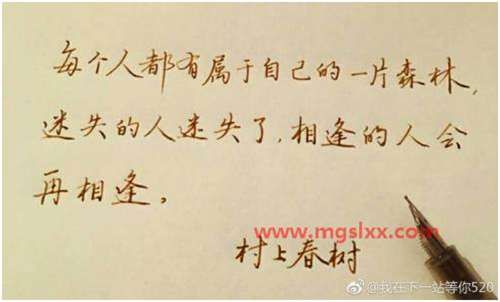 每个人都有属于自己的一片森林，
迷失的人迷失了，相逢的人会
再相逢。
www.mgslxx.com
村上春树
@我在下一站等你520